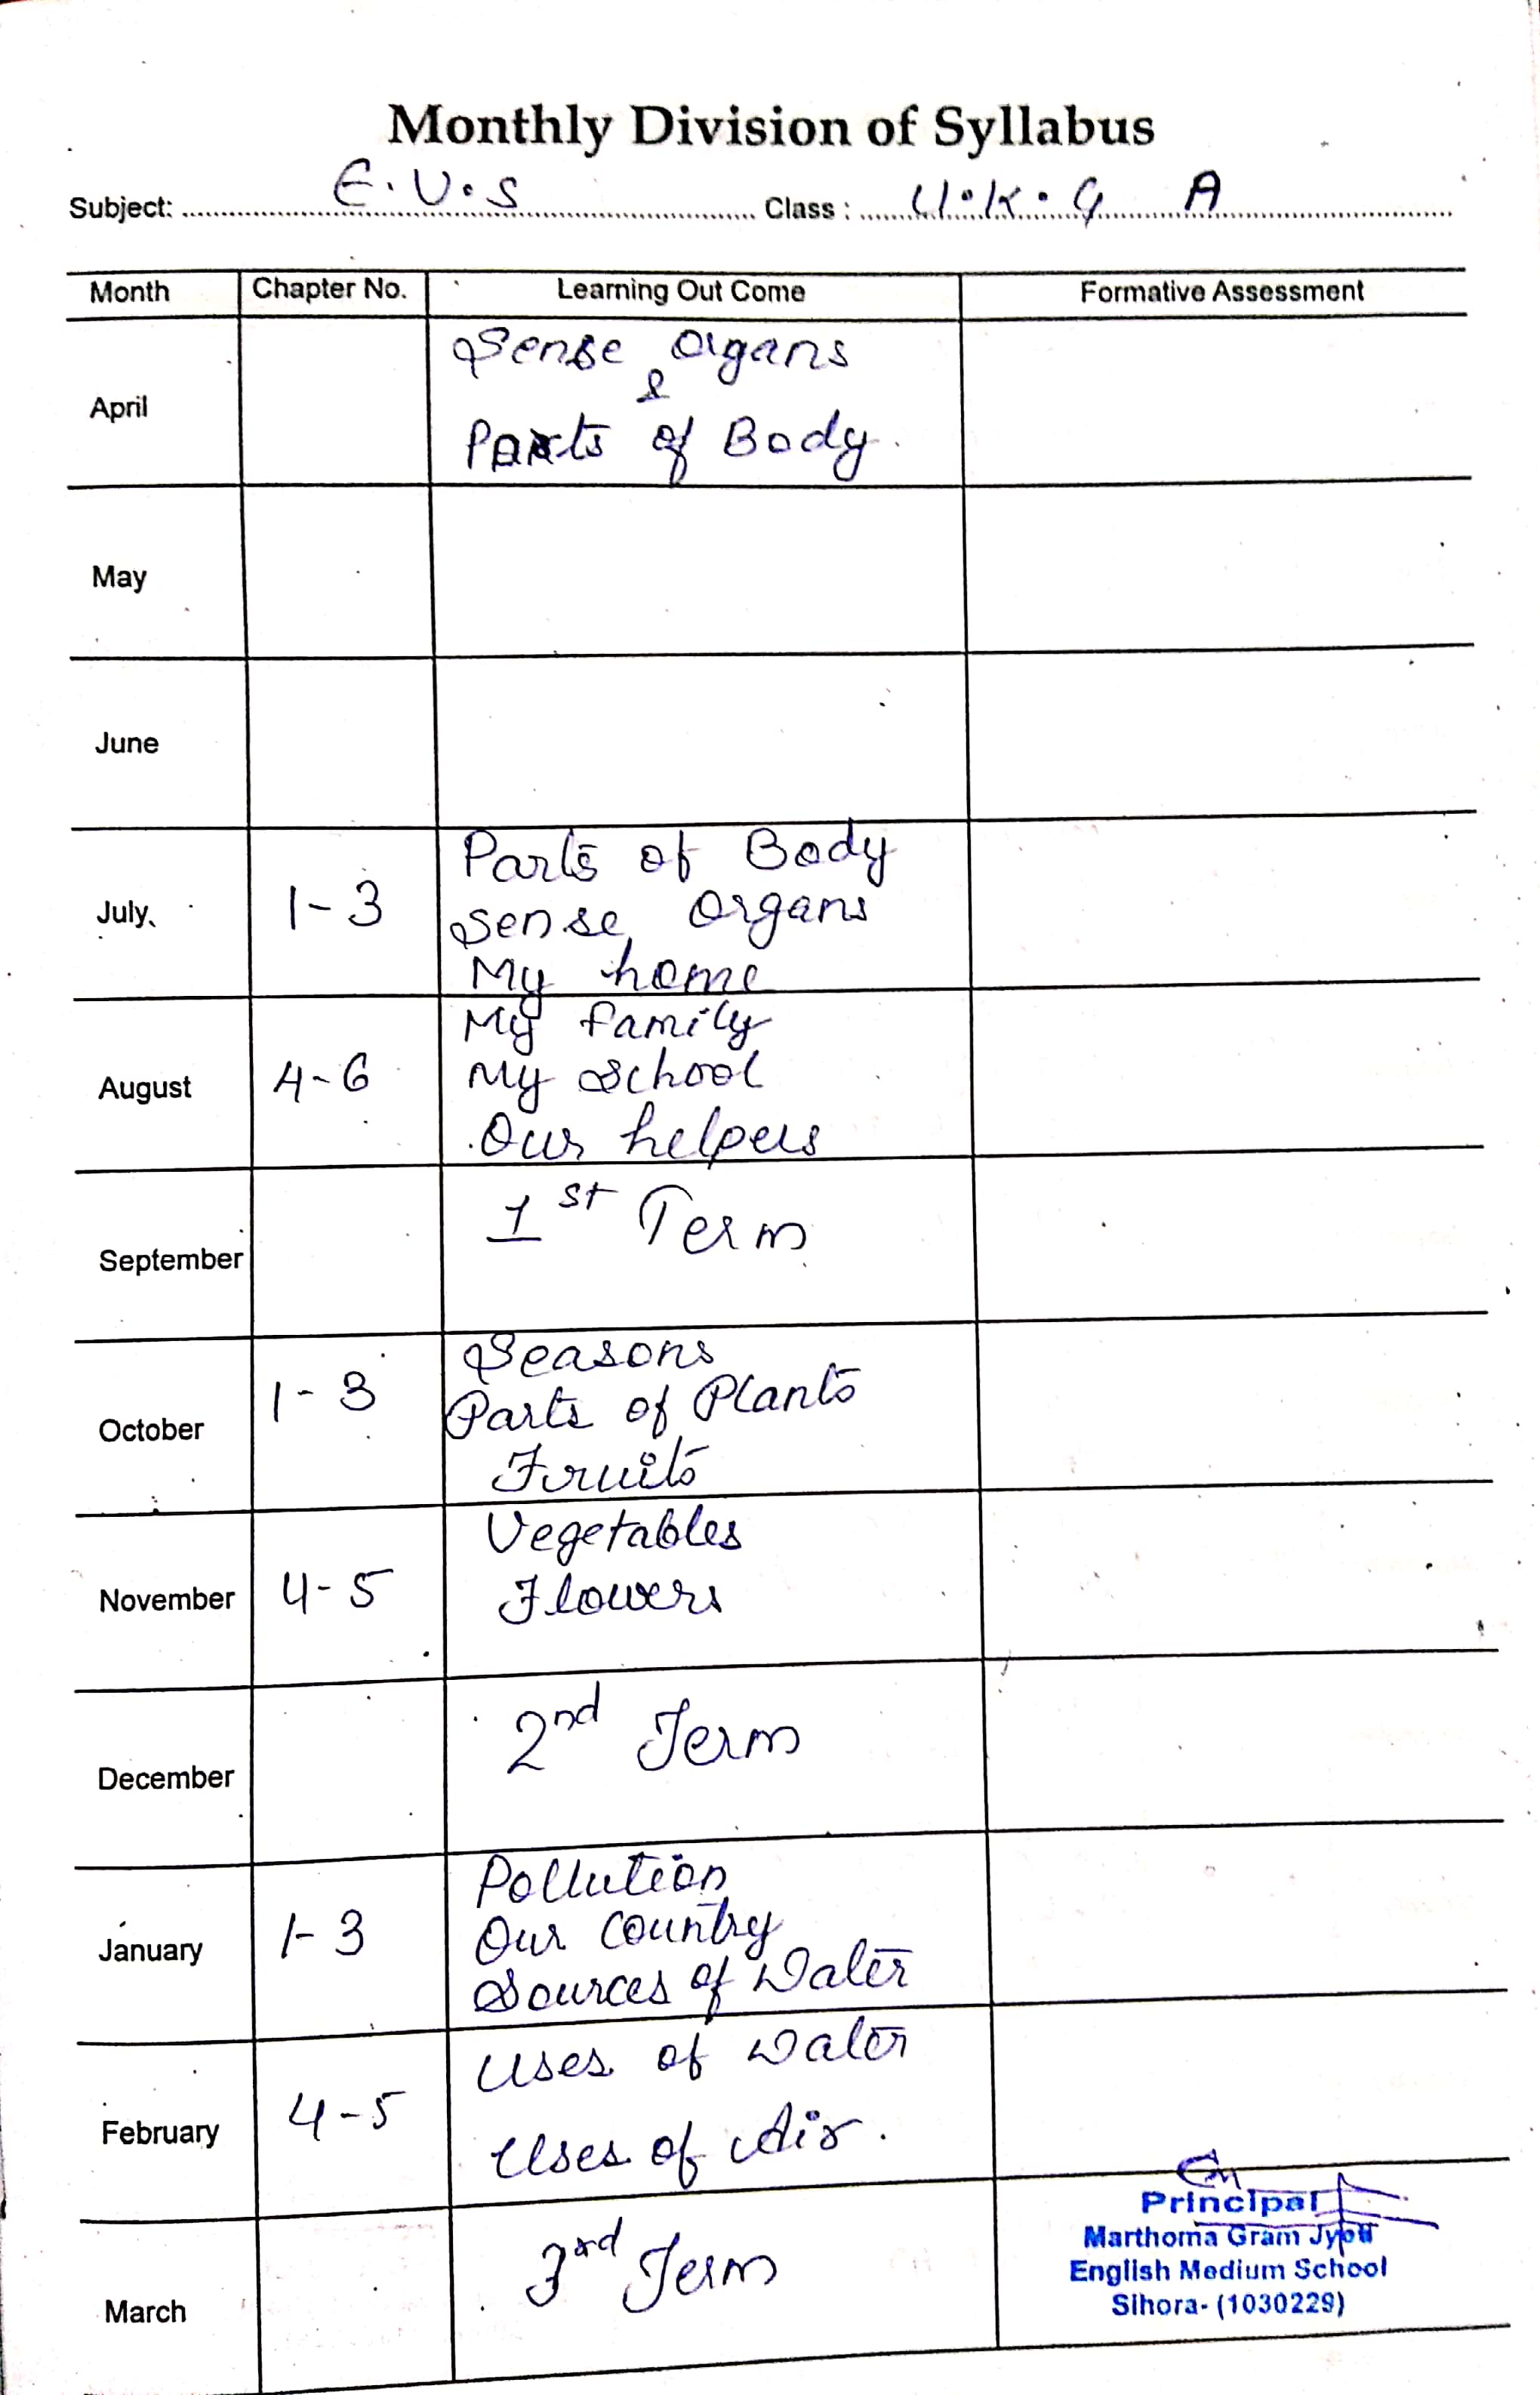 Monthly Division of Syllabus
Subject: E.V.S Class : U.K.G A
Month Chapter No. Learning Out Come Formative Assessment
April
Sense Organs
&
Parts of Body.
May
June
July
1-3
Parts of Body
Sense Organs
My home
August
4-6
My family
My School
Our helpers
September
1st Term
October
1-3
Seasons
Parts of Plants
Fruits
November
4-5
Vegetables
Flowers
December
2nd Term
January
1-3
Pollution
Our Country
Sources of Water
February
4-5
Uses of Water
Uses of Air.
March
3rd Term
Principal
Marthoma Gram Jyoti
English Medium School
Sihora- (1030229)